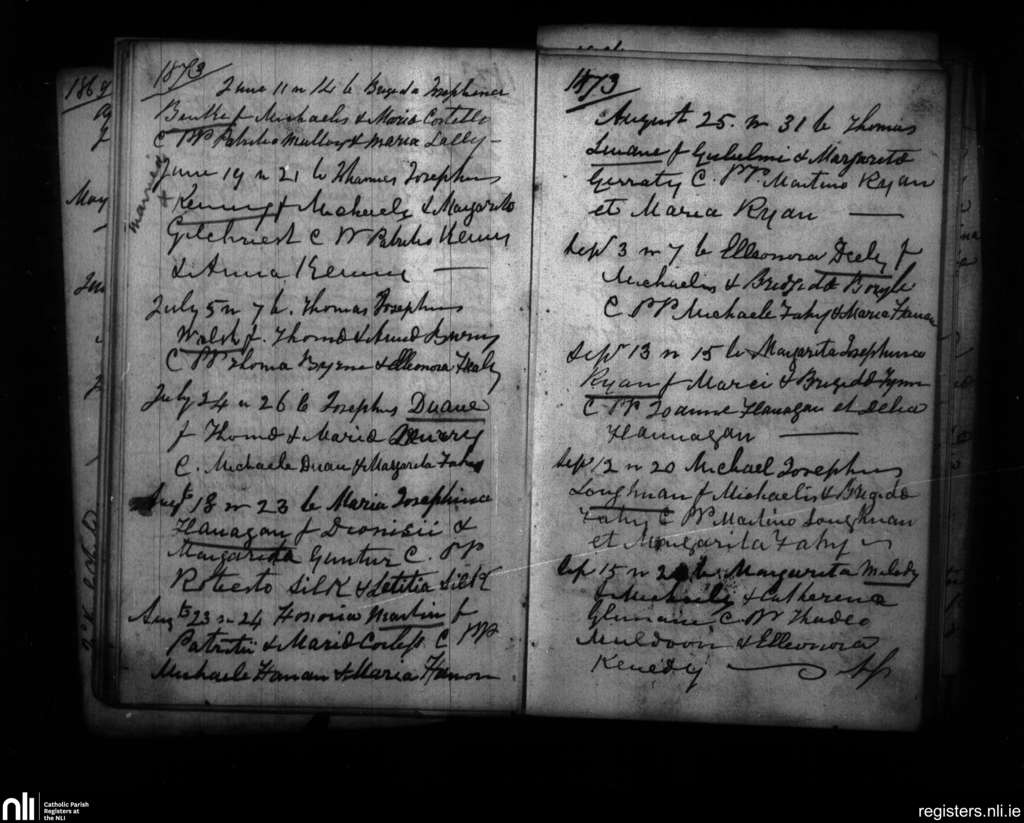 1873
June 11 n 14 b Brigida Josephina
f Michaelis & Maria Costello
C PP Patritio Mulloy & Maria Lally -
married
June 19 n 21 b Thomas Josephus
Kenny f Michaelis & Margarita
Gilchriest C PP Patritio Kenny
& Anna Kenny —
July 5 n 7 b. Thomas Josephus
Walsh f. Thoma &
C PP Thoma Byrne & Elleonora Healy
July 24 n 26 b Josephus Duane
f Thoma & Maria
C. Michaele Duan & Margarita Fahy
Augt 18 n 23 b Maria Josephina
Flanagan f Dionisii &
Margarita Guntur C. PP
Roberto Silk & Letitia Silk
Augt 23 n 24 Honoria Martin f
Patritii & Maria Corless C PP
Michaele Hanan & Maria Hanon
1873
August 25. n 31 b Thomas
f Gulielmi & Margarita
Gerraty C. PP. Martino Ryan
et Maria Ryan —
Sepr 3 n 7 b Elleonora Deely f
Michaelis & Brigida Boyle
C PP Michaele Fahy & Maria Hanan
Sepr 13 n 15 b Margarita Josephina
Ryan f Marci & Brigida Fynn
C PP Joanne Flanagan et Delia
Flannagan —
Sepr 12 n 20 Michael Josephus
Loughnan f Michaelis & Brigida
Fahy C PP Martino Loughnan
et Margarita Fahy
Sep 15 n b Margarita Melody
f Michaelis & Catherina
C PP Thadeo
Muldoon & Elleonora
Kenedy
1869
May
nli
Catholic Parish
Registers at
the NLI
registers.nli.ie